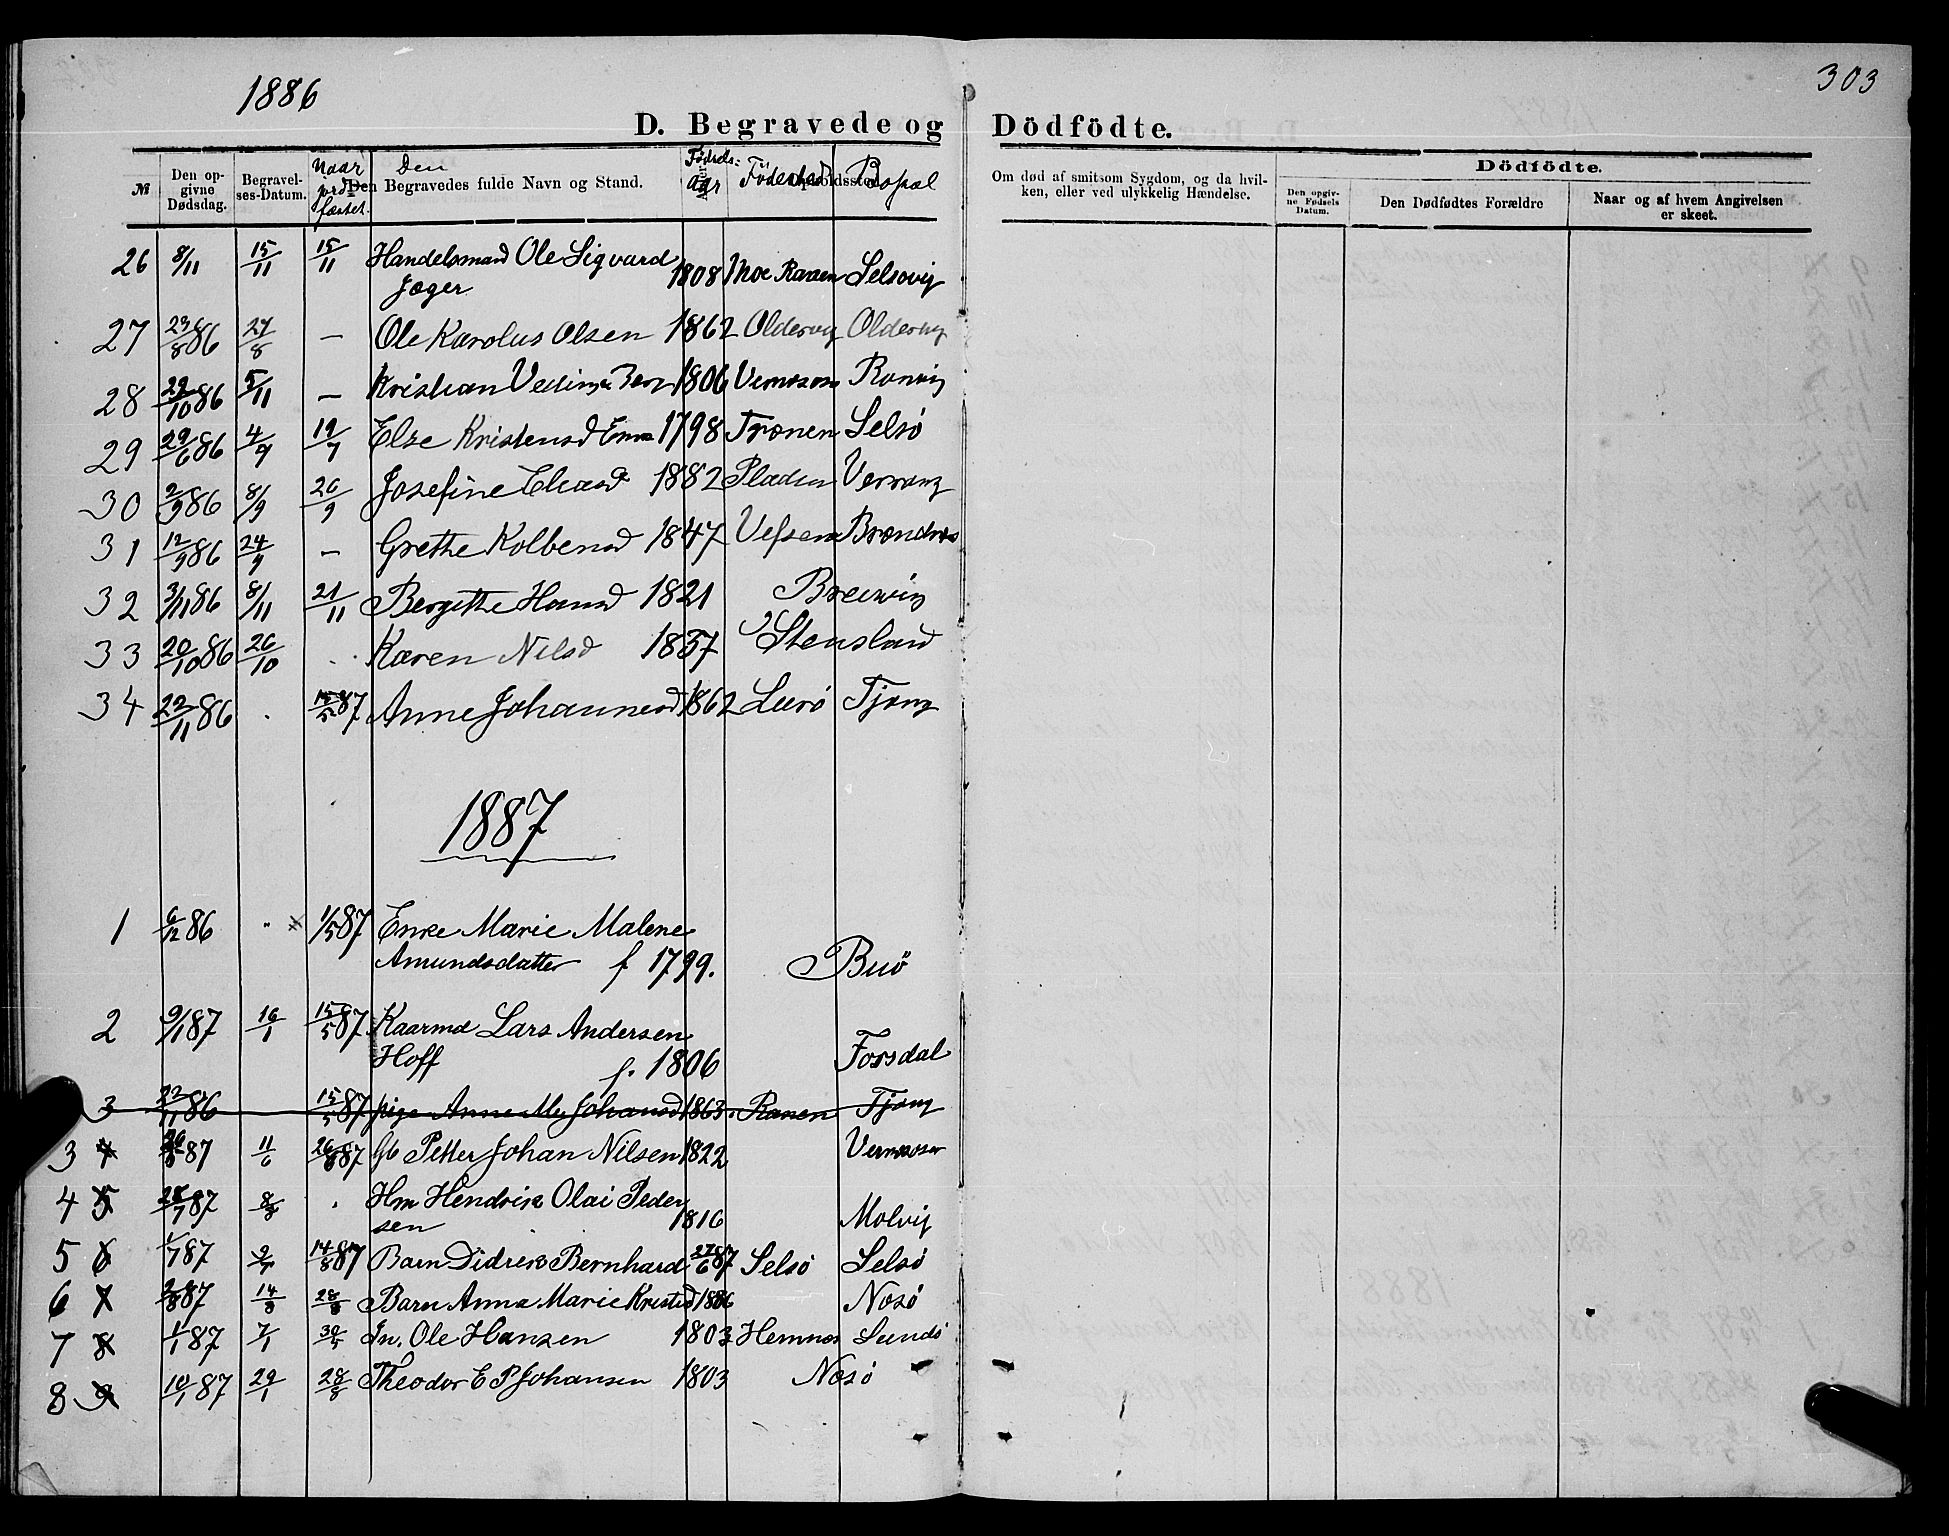 1886
303
D. Begravede og Dödfödte.
№ Den opgivne Dødsdag. Begravelses-Datum. Naar jordfæstet. Den Begravedes fulde Navn og Stand. Fødselsaar Fødested Bopæl
Om død af smitsom Sygdom, og da hvilken, eller ved ulykkelig Hændelse. Dödfödte. Den opgivne Fødsels Datum. Den Dødfødtes Forældre Naar og af hvem Angivelsen er skeet.
26 8/11 15/11 15/11 Handelsmand Ole Sigvard 1808 Moe Ranen Selsovig
Jæger
27 23/8 86 27/8 — Ole Karolus Olsen 1862 Oldervig Oldervig
28 29/10 86 5/11 — Kristian 1806
29 29/6 86 4/7 19/7 Else Kristensd Enke 1798 Trænen Selsö
30 2/9 86 8/9 26/9 Josefine Eliasd 1882
31 12/9 86 24/9 — Grethe Kolbensd 1847 Vefsen
32 3/11 86 8/11 21/11 Bergitte Hansd 1821 Breivig
33 20/10 86 26/10 Karen Nilsd 1837 Stensland
34 22/11 86 87 Anne Johannesd 1862 Lurö Tjong
1887
1 6/12 86 " 1/5 87 Enke Marie Malene
Amundsdatter f 1799. Buö
2 9/1 87 16/1 15/5 87 Kaarmd Lars Andersen
Hoff f. 1806 Forsdal
3 22/11 86 15/5 87 pige Anne M Johansd 1863. Ranen Tjong
3 4 87 11/6 26/6 87 Petter Johan Nilsen 1822
4 5 87 8/8 Hm Hendrik Olai Peder
sen 1816 Molvig
5 6 1/7 87 14/8 87 Barn Didrik Bernhard 27/6 87 Selsö Selsö
6 7 2/8 87 14/8 28/8 Barn Anna Marie Kristsd 1886 Nosö
7 8 1/1 87 7/1 30/5 In. Ole Hansen 1803 Hemnes Sundö
8 9 10/1 87 29/1 28/8 Theodor E P Johansen 1803 Nesö